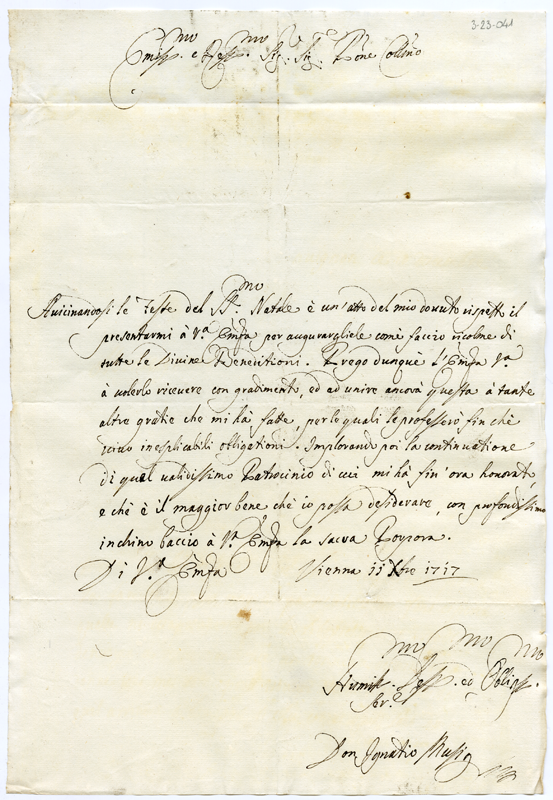 3-23-041
Emiss.mo e Reu.mo Sig.r Sig.r Pñe Colmo
Auicinandosi le Feste del SS.mo Natale è un'atto del mio douuto rispetto il
presentarmi à V.a Emza per augurargliele come faccio ricolme di
tutte le Diuine Beneditioni. Prego dunque l'Emza V.a
à uolerlo riceuere con gradimento, ed ad unire ancora questa à tante
altre gratie che mi hà fatte, per le quali le professerò fin chè
uiuo inesplicabili obligationi. Implorando poi la continuatione
di quel ualidissimo Patrocinio di cui mi hà fin' ora honorato,
e chè è il maggior bene chè io possa desiderare, con profondissimo
inchino baccio à V.a Emza la sacra Porpora.
Di V.a Emza Vienna 11 Xbre 1717
Humil.mo Deu.mo ed Oblig.mo
Ser.e
Don Ignatio